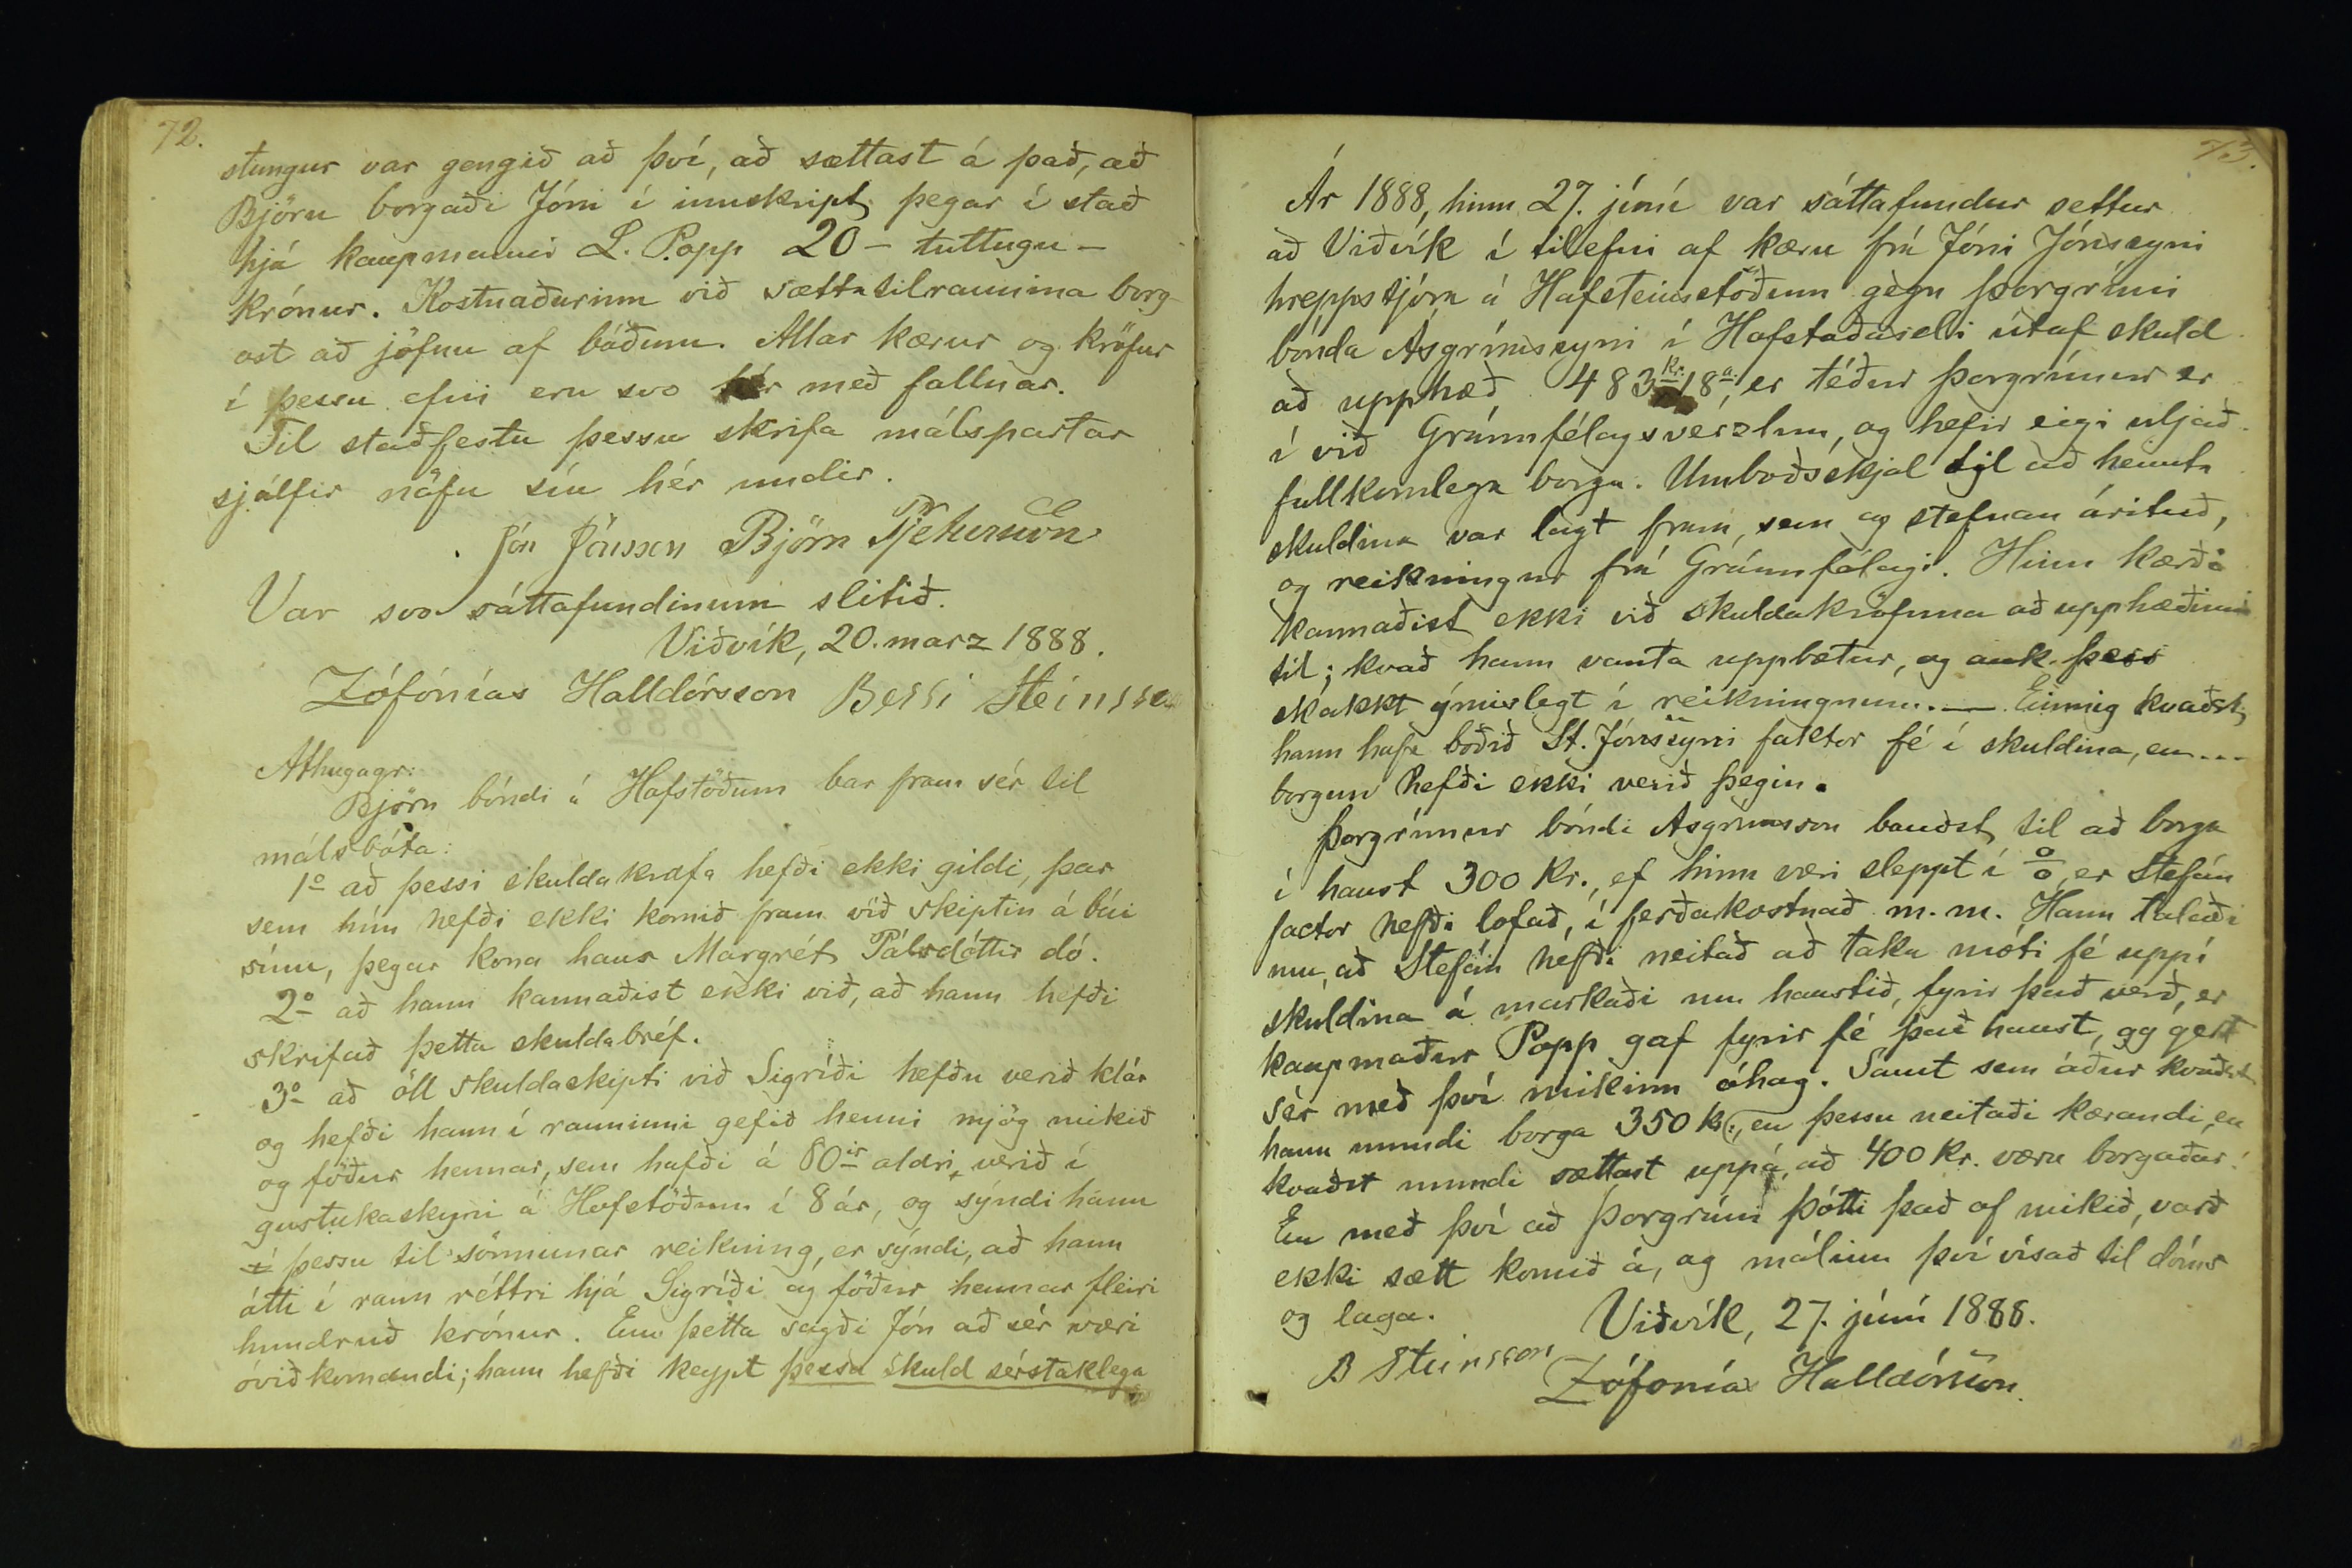 72.
stungur var gengið að því, að sættast á það, að
Björn borgaði Jóni í innskript þegar í stað
hjá kaupmanni L. Popp 20 – tuttugu –
krónur. Kostnaðurinn við sættatilraunina borg-
ast að jöfnu af báðum. Allar kærur og kröfur
í þessu efni eru svo hér með fallnar.
Til staðfestu þessu skrifa málspartar
sjálfir nöfn sín hér undir.
Jón Jónsson Björn Pjetursson
Var svo sáttafundinum slitið.
Viðvík, 20. marz 1888.
Zófónías Halldórsson Bessi Steinsson
Athugagr:
Björn bóndi á Hofstöðum bar fram sér til
málsbóta:
1º að þessi skuldakrafa hefði ekki gildi, þar
sem hún hefði ekki komið fram við skiptin á búi
sínu, þegar kona hans Margrét Pálsdóttir dó.
2º að hann kannaðist ekki við, að hann hefði
skrifað þetta skuldabréf.
3º að öll skuldaskipti við Sigríði hefðu verið klár
og hefði hann í rauninni gefið henni mjög mikið
og föður hennar, sem hafði á 80ir aldri, verið í
gustukaskyni á Hofstöðum í 8 ár, og sýndi hann
í þessu til sönnunar reikning, er sýndi, að hann
átti í raun réttri hjá Sigríði og föður hennar fleiri
hundruð krónur. En þetta sagði Jón að sér væri
óviðkomandi; hann hefði keypt þessa skuld sérstaklega
73.
Ár 1888, hinn 27. júní var sáttafundur settur
að Viðvík í tilefni af kæru frá Jóni Jónssyni
hreppstjóra á Hafsteinsstöðum gegn Þorgrími
bónda Ásgrímssyni í Hofstaðaseli útaf skuld
að upphæð 483 kr. 18 a., er téður Þorgrímur er
í við Gránufélagsverzlun, og hefir eigi viljað
fullkomlega borga. Umboðsskjal til að heimta
skuldina var lagt fram, sem og stefnan árituð,
og reikningur frá Gránufélagi. Hinn kærði
kannaðist ekki við skuldakröfuna að upphæðinni
til; kvað hann vanta uppbætur, og auk þess
skakkt ýmislegt í reikningnum. — Einnig kvaðst
hann hafa boðið St. Jónssyni faktor fé í skuldina, en ...
borgun hefði ekki verið þegin.
Þorgrímur bóndi Ásgrímsson bauðst til að borga
í haust 300 kr., ef hinu væri sleppt í %, er Stefán
factor hefði lofað, í ferðakostnað m.m. Hann talaði
um, að Stefán hefði neitað að taka móti fé uppí
skuldina á markaði um haustið, fyrir það verð, er
kaupmaður Popp gaf fyrir fé það haust, og gert
sér með því mikinn óhag. Samt sem áður kvaðst
hann mundi borga 350 kr., en þessu neitaði kærandi, en
kvaðst mundi sættast uppá, að 400 kr. væru borgaðar.
En með því að Þorgrími þótti það of mikið, varð
ekki sætt komið á, og málinu því vísað til dóms
og laga.
Viðvík, 27. júní 1888.
B Steinsson
Zófonías Halldórsson.